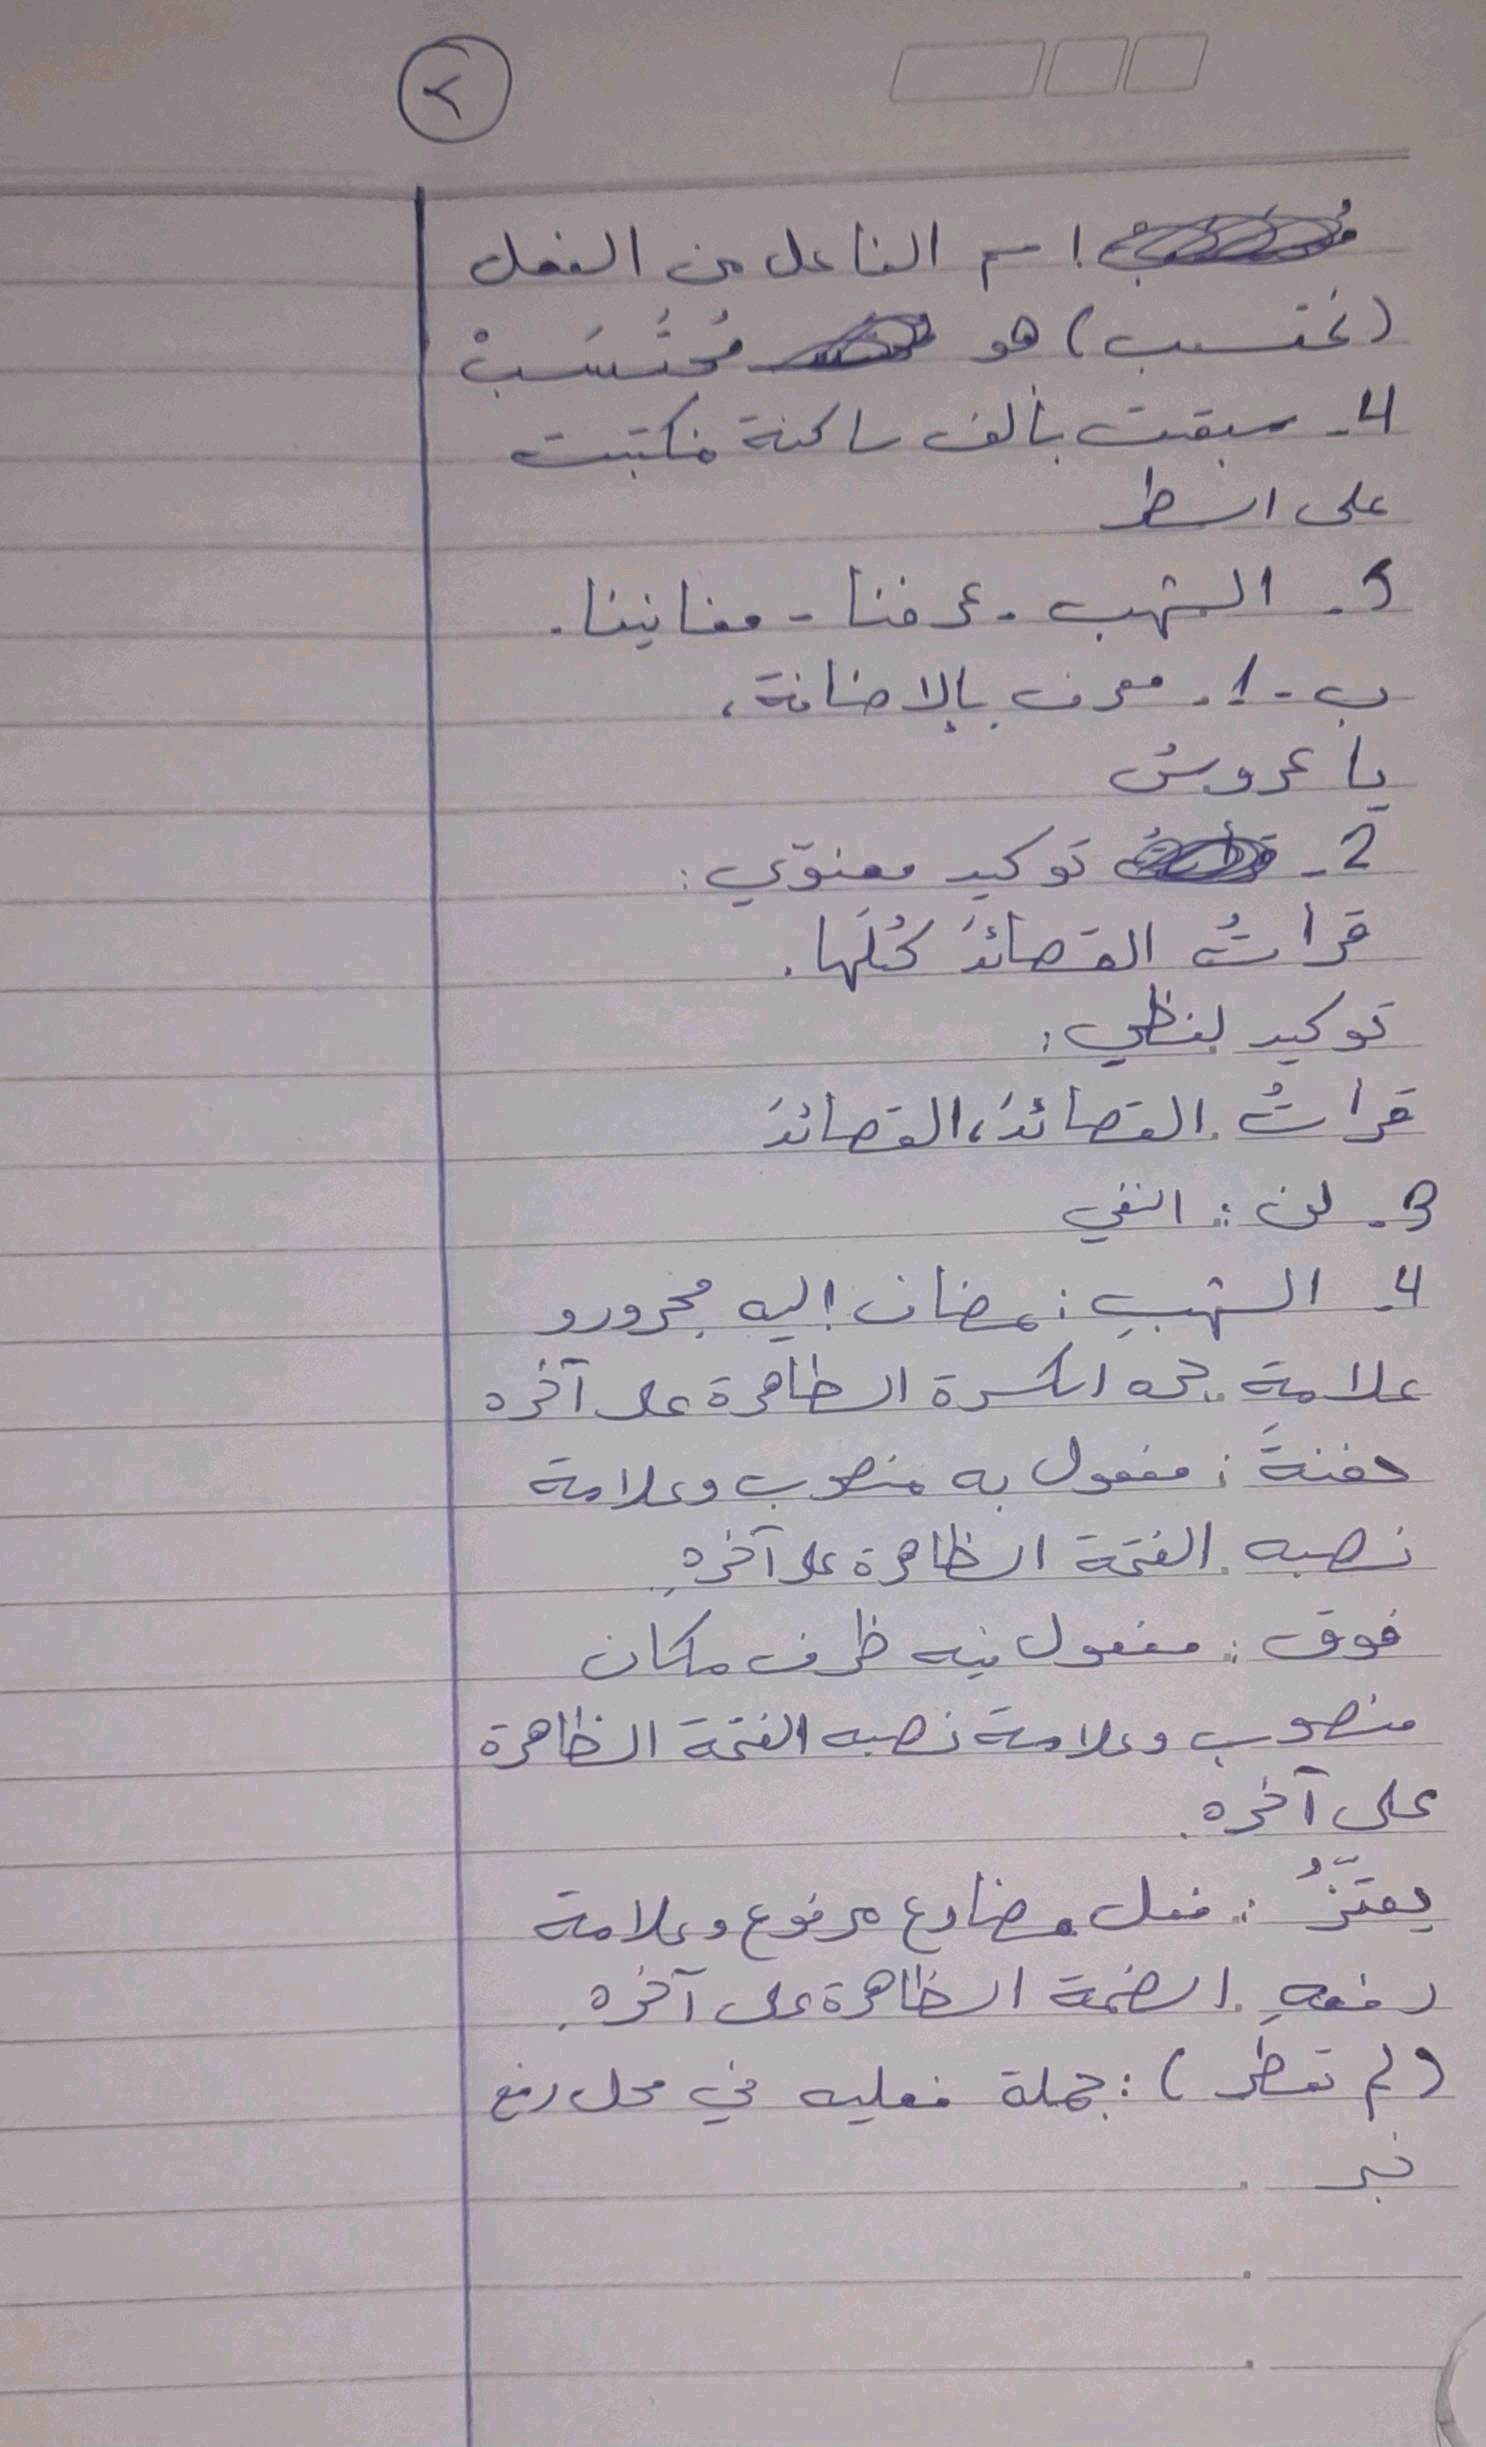 ٢
اسم الفاعل من الفعل
(نحتسب) هو مُحْتُسَبْ
4- سبقت بألف ساكنة فكتبت
على السطر
5- الشهب - عرفنا - مغانينا.
ب-1- معرف بالإضافة،
يا عروسُ
2- توكيد معنوّي:
قرأتُ القصائدَ كُلَها.
توكيد لفظي:
قراتُ القصائدَ، القصائدَ
3- لن: النفي
4- الشهبِ: مضاف إليه مجرور و
علامة جره الكسرة الظاهرة على آخره
حفنةَ: مفعول به منصوب وعلامة
نصبه الفتحة الظاهرة على آخره.
فوق: مفعول فيه ظرف مكان
منصوب وعلامة نصبه الفتحة الظاهرة
على آخره.
يعتزُّ: فعل مضارع مرفوع وعلامة
رفعه الضمة الظاهرة على آخره.
(لم تمطر): جملة فعليه في محل رفع
خبر